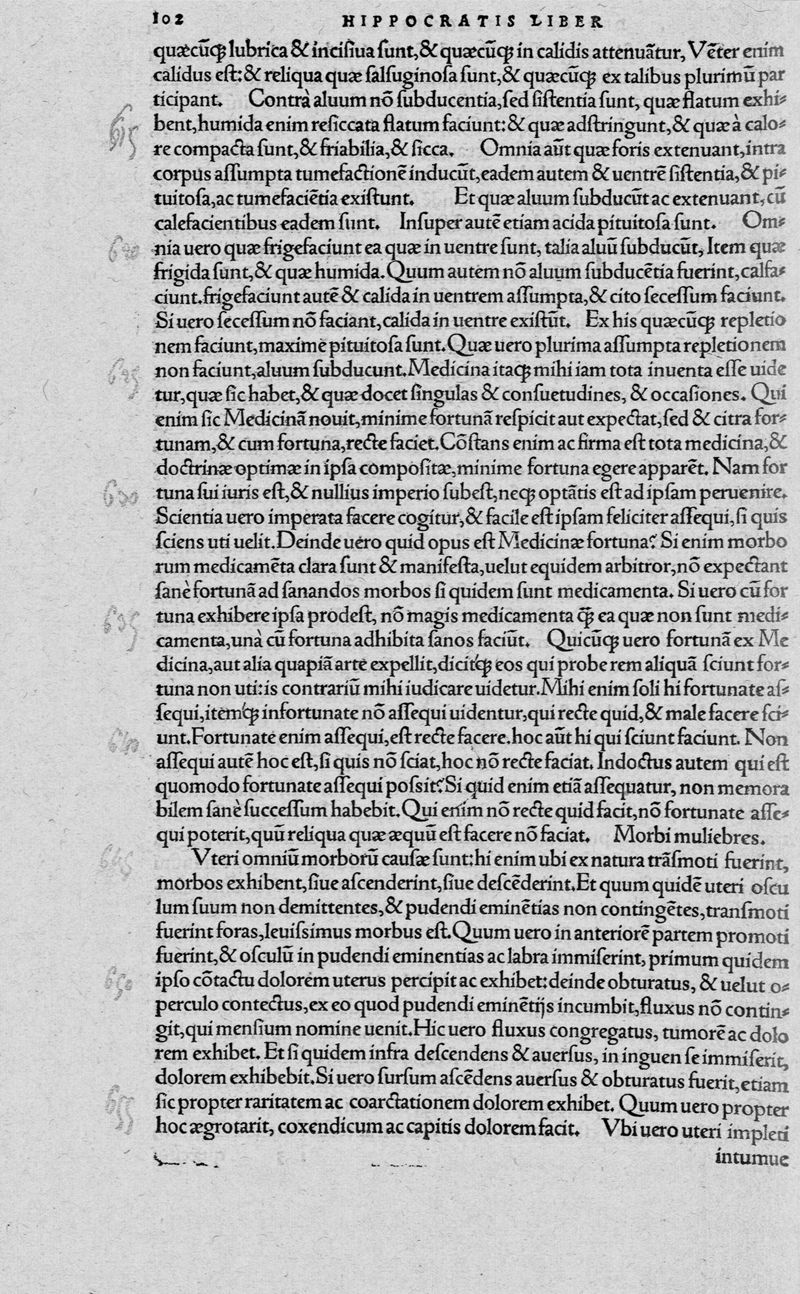 102 HIPPOCRATIS LIBER
quæcũq; lubrica & inciſiua ſunt,& quæcũq; in calidis attenuãtur, Vẽter enim
calidus eſt:& reliqua quæ ſalſuginoſa ſunt,& quæcũq; ex talibus plurimũ par
ticipant. Contrà aluum nõ ſubducentia,ſed ſiſtentia ſunt, quæ flatum exhi-
bent,humida enim reſiccata flatum faciunt:& quæ adſtringunt,& quæ à calo-
re compacta ſunt,& friabilia,& ſicca. Omnia aũt quæ foris extenuant,intra
corpus aſſumpta tumefactionẽ inducũt,eadem autem & uentrẽ ſiſtentia,& pi-
tuitoſa,ac tumefaciẽtia exiſtunt. Et quæ aluum ſubducũt ac extenuant,cũ
calefacientibus eadem ſunt. Inſuper autẽ etiam acida pituitoſa ſunt. Om-
nia uero quæ frigefaciunt ea quæ in uentre ſunt, talia aluũ ſubducũt, Item quæ
frigida ſunt,& quæ humida. Quum autem nõ aluum ſubducẽtia fuerint,calfa-
ciunt.frigefaciunt autẽ & calida in uentrem aſſumpta,& cito ſeceſſum faciunt.
Si uero ſeceſſum nõ faciant,calida in uentre exiſtũt. Ex his quæcũq; repletio
nem faciunt,maximè pituitoſa ſunt. Quæ uero plurima aſſumpta repletionem
non faciunt,aluum ſubducunt. Medicina itaq; mihi iam tota inuenta eſſe uide
tur,quæ ſic habet,& quæ docet ſingulas & conſuetudines, & occaſiones. Qui
enim ſic Medicinã nouit,minime fortunã reſpicit aut expectat,ſed & citra for-
tunam,& cum fortuna,recte faciet. Cõſtans enim ac firma eſt tota medicina,&
doctrinæ optimæ in ipſa compoſitæ,minime fortuna egere apparẽt. Nam for
tuna ſui iuris eſt,& nullius imperio ſubeſt,neq; optãtis eſt ad ipſam peruenire.
Scientia uero imperata facere cogitur,& facile eſt ipſam feliciter aſſequi,ſi quis
ſciens uti uelit. Deinde uero quid opus eſt Medicinæ fortuna? Si enim morbo
rum medicamẽta clara ſunt & manifeſta,uelut equidem arbitror,nõ expectant
ſanè fortunã ad ſanandos morbos ſi quidem ſunt medicamenta. Si uero cũ for
tuna exhibere ipſa prodeſt, nõ magis medicamenta q̃ ea quæ non ſunt medi-
camenta,unà cũ fortuna adhibita ſanos faciũt. Quicũq; uero fortunã ex Me
dicina,aut alia quapiã arte expellit,dicitq; eos qui probe rem aliquã ſciunt for-
tuna non uti:is contrariũ mihi iudicare uidetur. Mihi enim ſoli hi fortunate aſ-
ſequi,itemq; infortunate nõ aſſequi uidentur,qui recte quid,& male facere ſci-
unt. Fortunate enim aſſequi,eſt recte facere.hoc aũt hi qui ſciunt faciunt. Non
aſſequi autẽ hoc eſt,ſi quis nõ ſciat,hoc nõ recte faciat. Indoctus autem qui eſt
quomodo fortunate aſſequi poſsit? Si quid enim etiã aſſequatur, non memora
bilem ſanè ſucceſſum habebit. Qui enim nõ recte quid facit,nõ fortunate aſſe-
qui poterit,quũ reliqua quæ æquũ eſt facere nõ faciat. Morbi muliebres.
Vteri omniũ morborũ cauſæ ſunt:hi enim ubi ex natura trãſmoti fuerint,
morbos exhibent,ſiue aſcenderint,ſiue deſcẽderint. Et quum quidẽ uteri oſcu
lum ſuum non demittentes,& pudendi eminẽtias non contingẽtes,tranſmoti
fuerint foras,leuiſsimus morbus eſt. Quum uero in anteriorẽ partem promoti
fuerint,& oſculũ in pudendi eminentias ac labra immiſerint, primum quidem
ipſo cõtactu dolorem uterus percipit ac exhibet:deinde obturatus, & uelut o-
perculo contectus,ex eo quod pudendi eminẽtijs incumbit,fluxus nõ contin-
git,qui menſium nomine uenit. Hic uero fluxus congregatus, tumorẽ ac dolo
rem exhibet. Et ſi quidem infra deſcendens & auerſus, in inguen ſe immiſerit,
dolorem exhibebit. Si uero ſurſum aſcẽdens auerſus & obturatus fuerit,etiam
ſic propter raritatem ac coarctationem dolorem exhibet. Quum uero propter
hoc ægrotarit, coxendicum ac capitis dolorem facit. Vbi uero uteri impleti
intumue